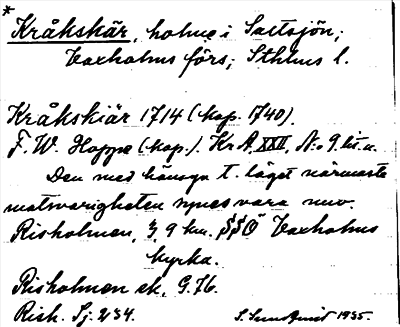 * Kråkskär, holme i Saltsjön;
Vaxholms förs; Sthlms l.
Kråkskiär 1714 (kop. 1740).
F. W. Hoppe (kop.). Kr A. XXII, N:o 9 lit. u.
Den med hänsyn t. läget närmaste
motsvarigheten synes vara nuv.
Risholmen, 3,9 km. SSO Vaxholms
kyrka.
Risholmen ek. G. 76.
Risk. Sj. 234. S. Sundqvist 1935.